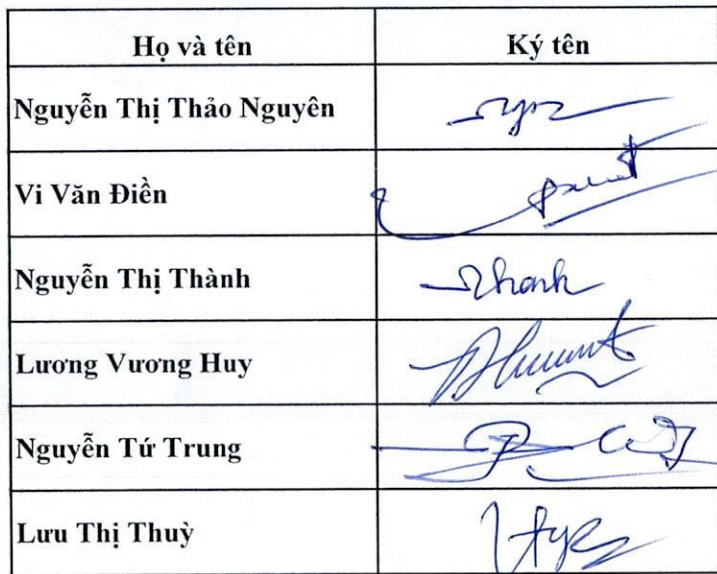 Họ và tên Ký tên
Nguyễn Thị Thảo Nguyên
Vi Văn Điền
Nguyễn Thị Thành
Lương Vương Huy
Nguyễn Tứ Trung
Lưu Thị Thuỳ